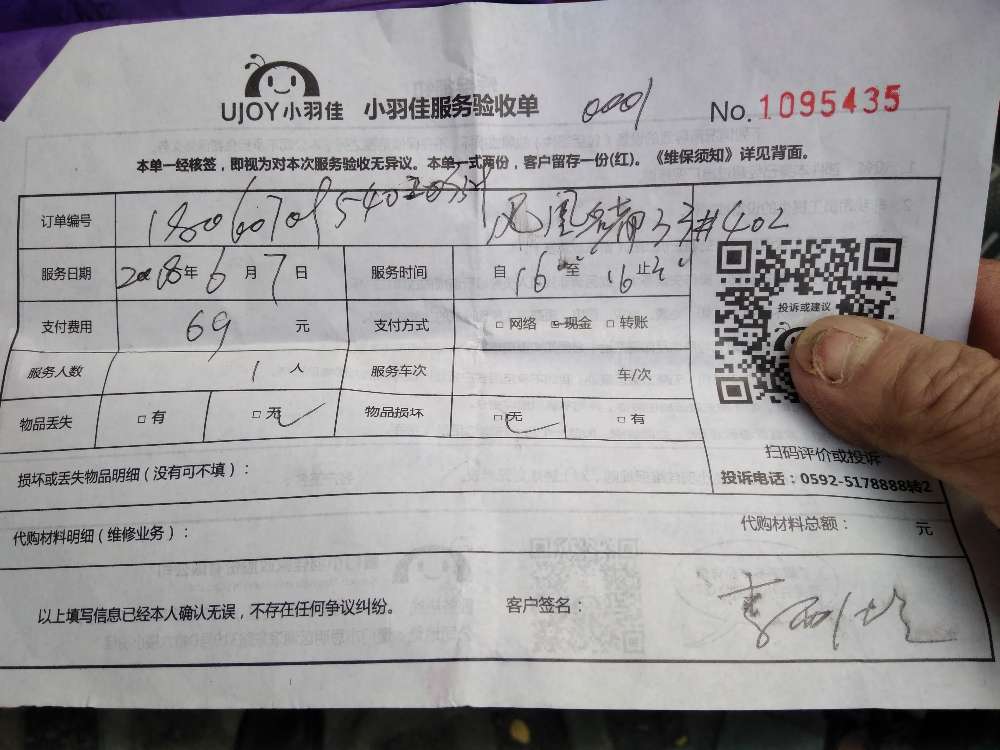 UJOY小羽佳 小羽佳服务验收单 0001 No.1095435
本单一经核签，即视为对本次服务验收无异议。本单一式两份，客户留存一份(红)。《维保须知》详见背面。
订单编号 #402
服务日期 2018年6月7日 服务时间 自16至16止
支付费用 69元 支付方式 □网络 □现金 □转账
投诉或建议
服务人数 1人 服务车次 车/次
物品丢失 □有 □无 物品损坏 □无 □有
扫码评价或投诉
损坏或丢失物品明细（没有可不填）：
投诉电话：0592-5178888转2
代购材料明细（维修业务）： 代购材料总额： 元
以上填写信息已经本人确认无误，不存在任何争议纠纷。 客户签名：